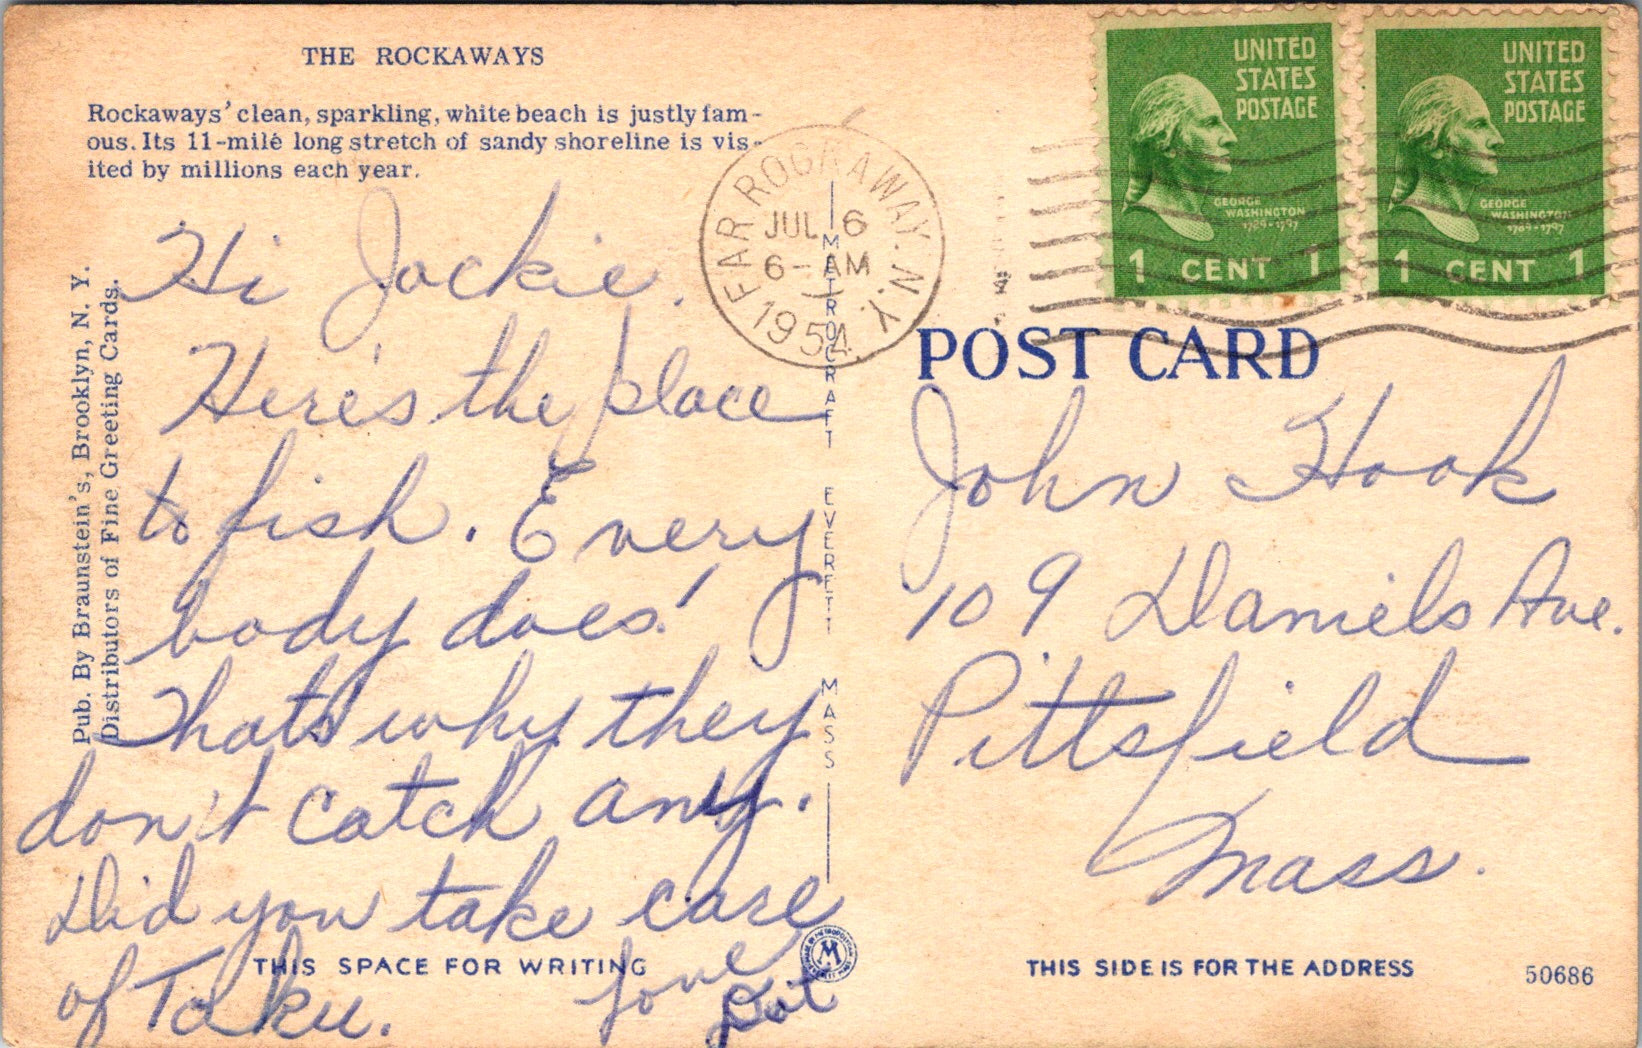 THE ROCKAWAYS
Rockaways' clean, sparkling, white beach is justly fam-
ous. Its 11-mile long stretch of sandy shoreline is vis-
ited by millions each year.
Hi Jackie.
Here's the place
to fish. Every
body does!
That's why they
don't catch any.
Did you take care
of Taku.
Love
Dot
THIS SPACE FOR WRITING
Pub. By Braunstein's, Brooklyn, N. Y.
Distributors of Fine Greeting Cards.
METROCRAFT EVERETT MASS
M
FAR ROCKAWAY. N.Y.
JUL 6
6-AM
1954
UNITED
STATES
POSTAGE
GEORGE
WASHINGTON
1789-1797
1 CENT 1
UNITED
STATES
POSTAGE
GEORGE
WASHINGTON
1789-1797
1 CENT 1
POST CARD
John Hook
109 Daniels Ave.
Pittsfield
Mass.
THIS SIDE IS FOR THE ADDRESS
50686